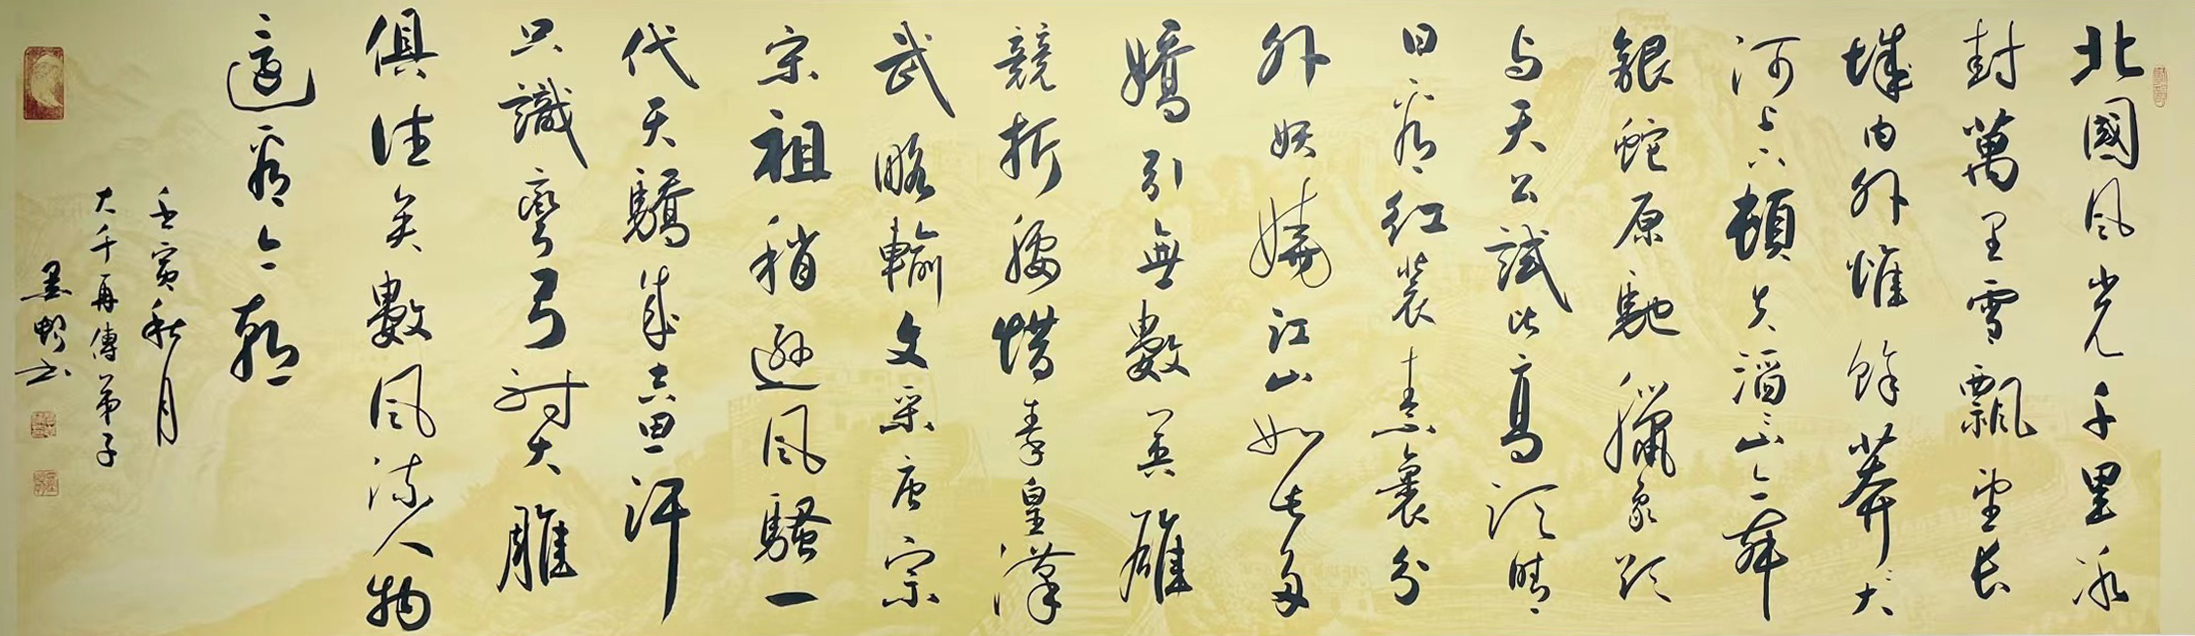 北國風光千里冰
封萬里雪飄望長
城内外惟餘莽々大
河上下頓失滔々山舞
銀蛇原馳臘象欲
与天公試比高須晴
日看紅裝素裹分
外妖嬈江山如此多
嬌引無數英雄
競折腰惜秦皇漢
武略輸文采唐宗
宋祖稍遜風騷一
代天驕成吉思汗
只識彎弓射大雕
俱往矣數風流人物
還看今朝
壬寅秋月
大千再傳弟子
书